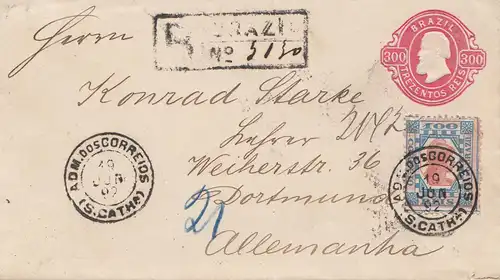 Herrn
R BRAZIL
Nº 5130
BRAZIL
300 300
TREZENTOS REIS
Konrad Starke
Lehrer
Weiherstr. 36
Dortmund
Allemanha
21
ADM. DOS CORREIOS
19
JUN
92
(S. CATHª)
400
REIS
ADM. DOS CORREIOS
19
JUN
92
(S. CATHª)